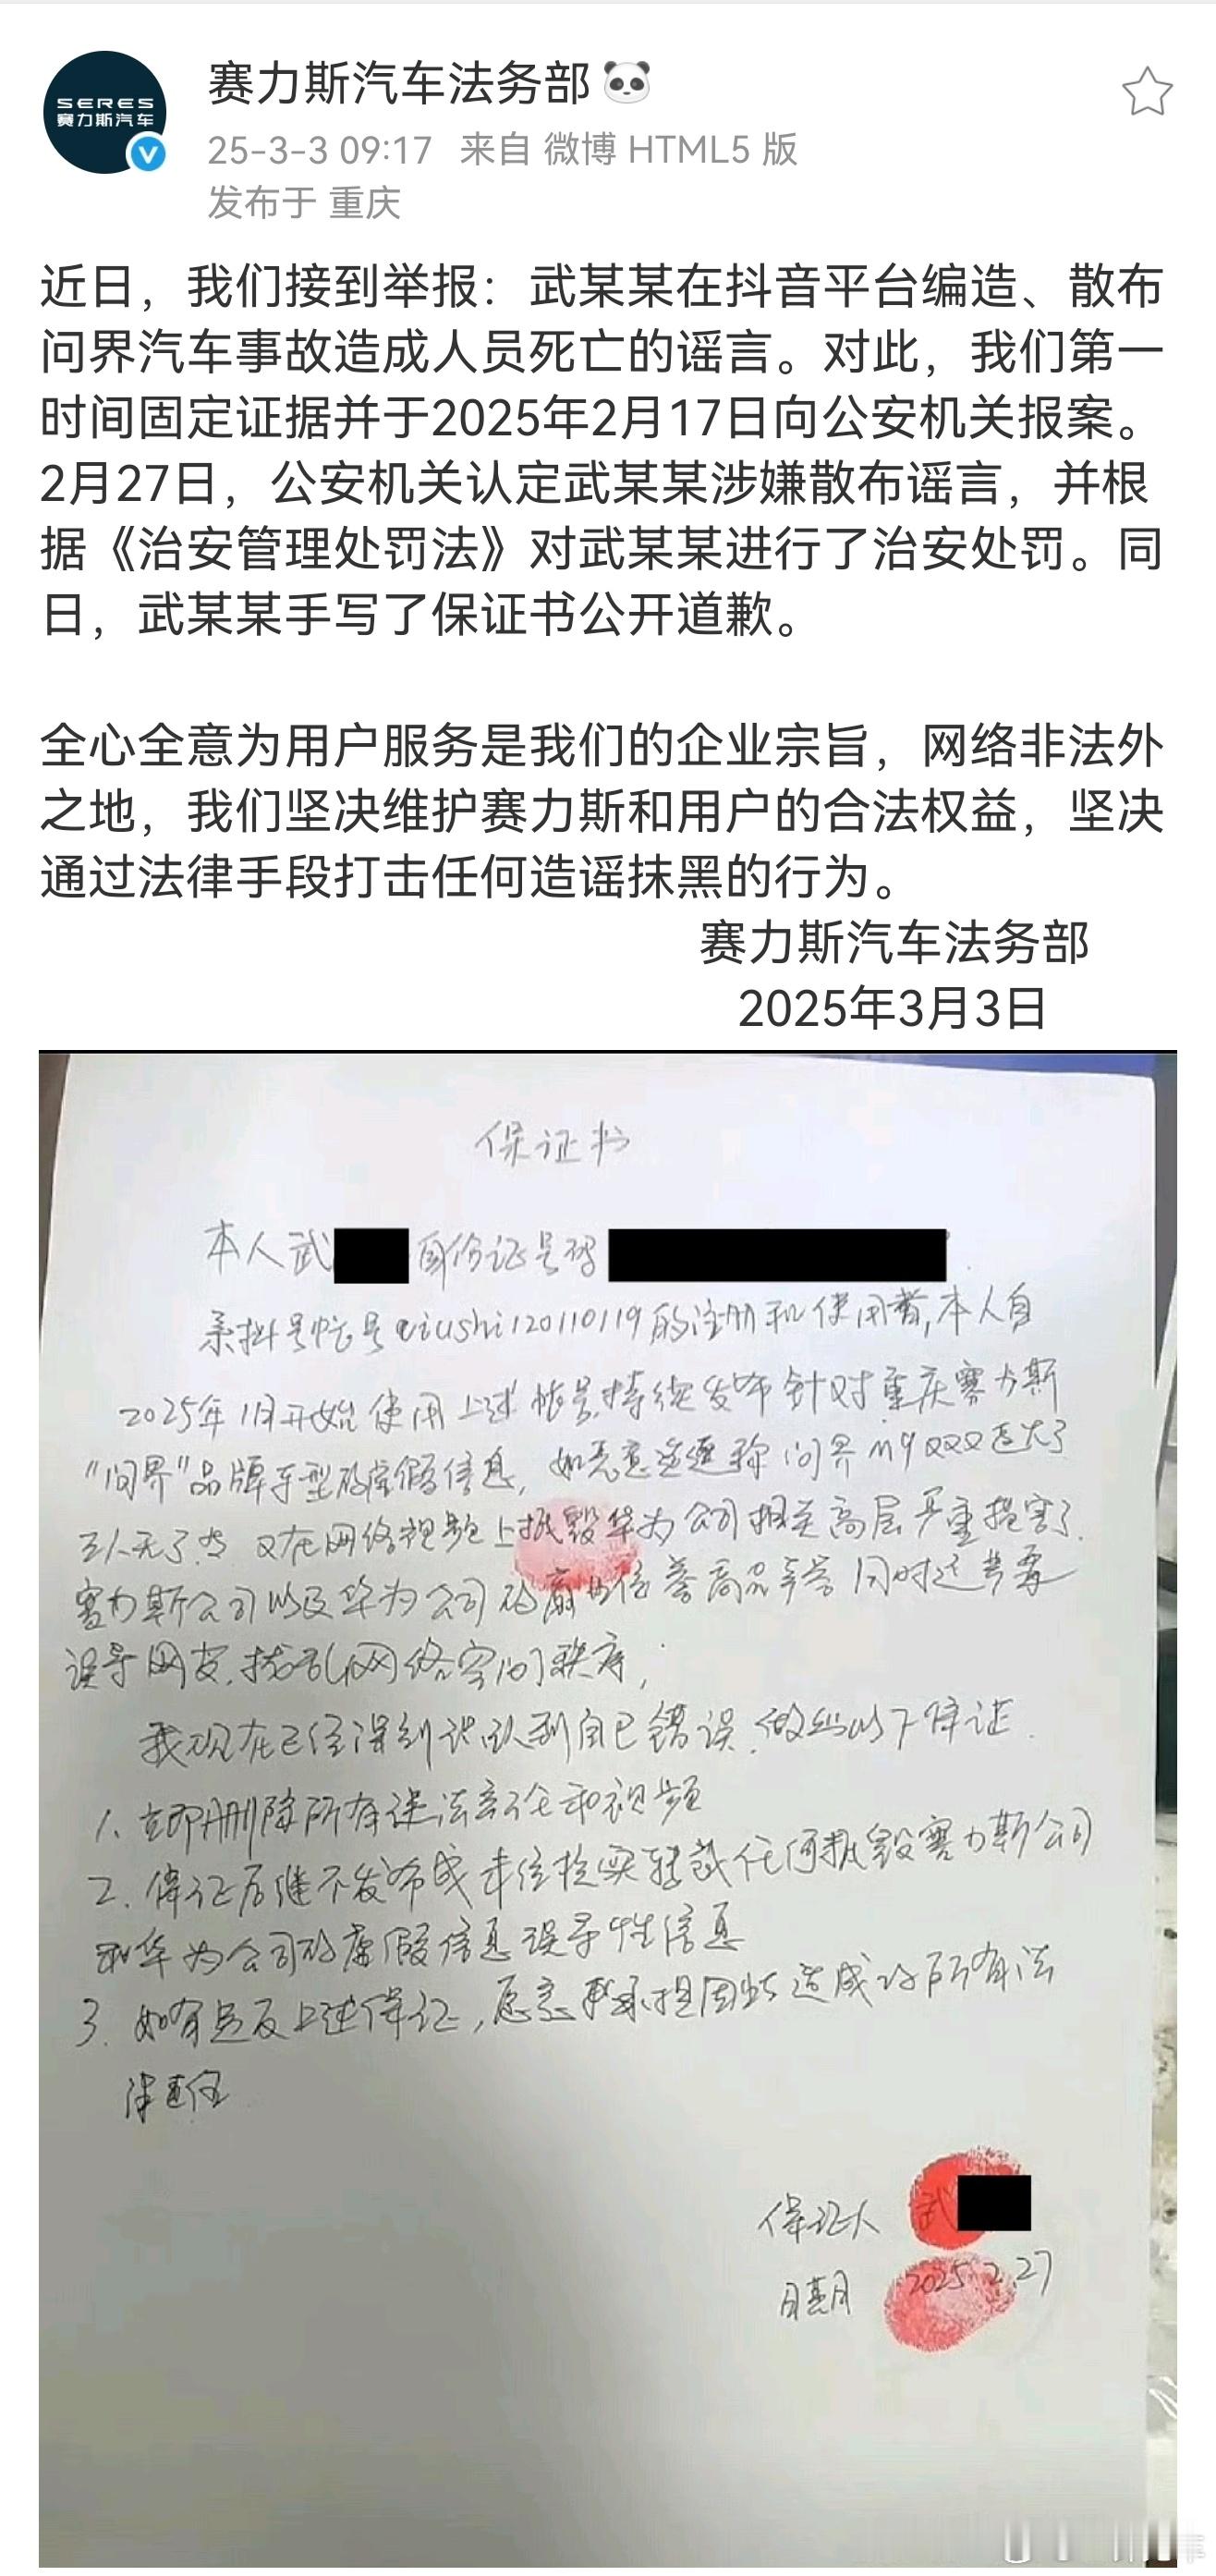 赛力斯汽车法务部
SERES
赛力斯汽车
25-3-3 09:17 来自 微博 HTML5 版
发布于 重庆
近日，我们接到举报：武某某在抖音平台编造、散布
问界汽车事故造成人员死亡的谣言。对此，我们第一
时间固定证据并于2025年2月17日向公安机关报案。
2月27日，公安机关认定武某某涉嫌散布谣言，并根
据《治安管理处罚法》对武某某进行了治安处罚。同
日，武某某手写了保证书公开道歉。
全心全意为用户服务是我们的企业宗旨，网络非法外
之地，我们坚决维护赛力斯和用户的合法权益，坚决
通过法律手段打击任何造谣抹黑的行为。
赛力斯汽车法务部
2025年3月3日
保证书
本人武 身份证号码
系抖号帐号 qiushi120110119的注册和使用者,本人自
2025年1月开始使用上述帐号,持续发布针对重庆赛力斯
"问界"品牌车型的虚假信息,如恶意造谣称问界m9 起火了
三人无了, 又在网络视频上抵毁华为公司相关高层严重损害了
赛力斯公司以及华为公司的 信誉商品声誉同时还严重
误导网友,扰乱网络空间秩序,
我现在已经深刻认识到自己错误,做出以下保证.
1、立即删除所有违法言论和视频
2.保证后继不发布或未经核实转载任何抵毁赛力斯公司
和华为公司的虚假信息误导性信息
3.如有违反上述保证,愿意承担因此造成的所有法
律责任
保证人 武
日期 2025.2.27